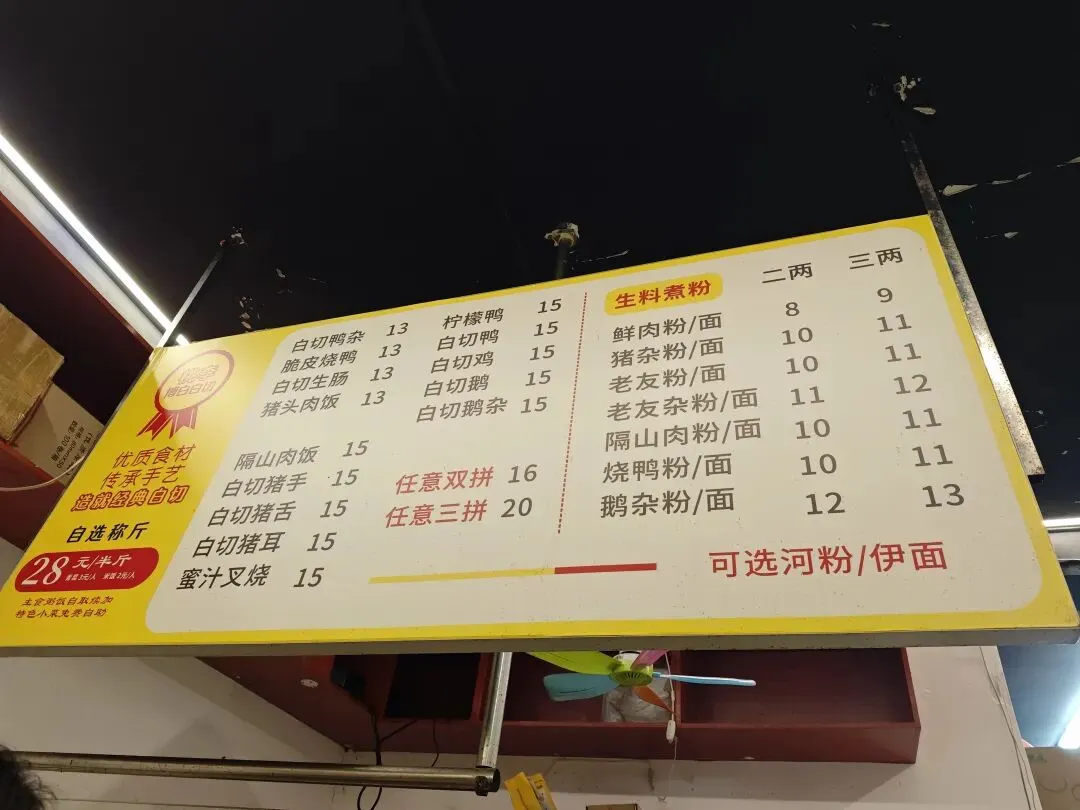 博白白切
优质食材
传承手艺
造就经典白切
自选称斤
28元/半斤
主食粥饭自取续加
特色小菜免费自助
白切鸭杂 13
脆皮烧鸭 13
白切生肠 13
猪头肉饭 13
柠檬鸭 15
白切鸭 15
白切鸡 15
白切鹅 15
白切鹅杂 15
隔山肉饭 15
白切猪手 15
白切猪舌 15
白切猪耳 15
蜜汁叉烧 15
任意双拼 16
任意三拼 20
生料煮粉 二两 三两
鲜肉粉/面 8 9
猪杂粉/面 10 11
老友粉/面 10 11
老友杂粉/面 11 12
隔山肉粉/面 10 11
烧鸭粉/面 10 11
鹅杂粉/面 12 13
可选河粉/伊面